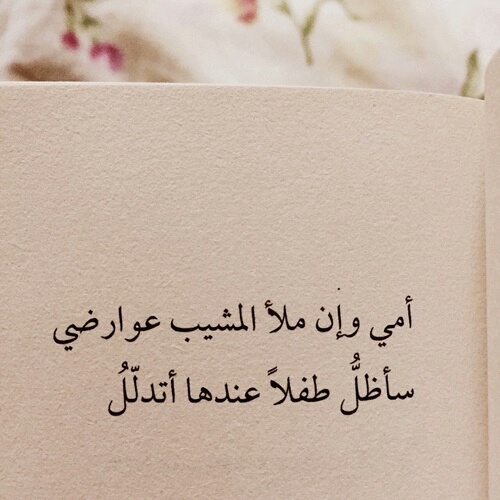 أمي وإن ملأ المشيب عوارضي
سأظلُّ طفلاً عندها أتدلّلُ